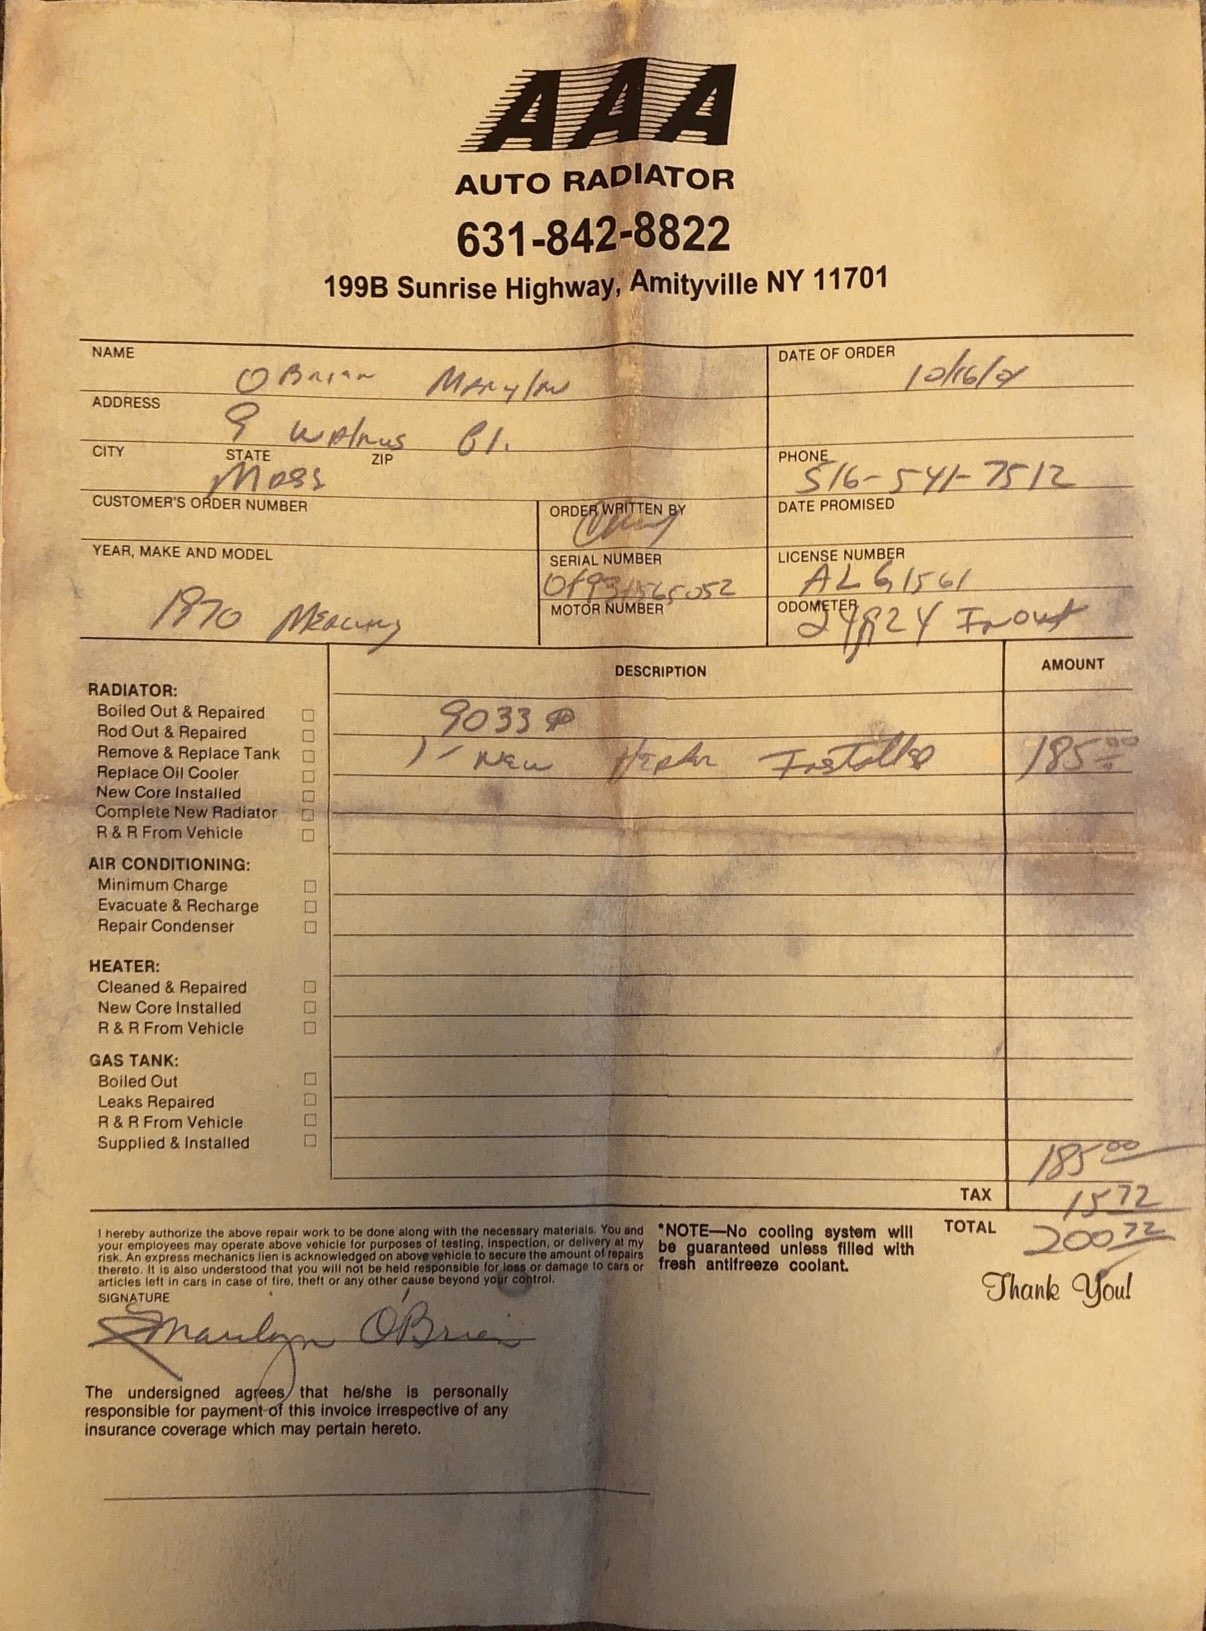 AAA
AUTO RADIATOR
631-842-8822
199B Sunrise Highway, Amityville NY 11701
NAME OBrian
DATE OF ORDER 10/16/01
ADDRESS 9 Walnus
CITY STATE ZIP
Mass
PHONE 516-541-7512
CUSTOMER'S ORDER NUMBER
ORDER WRITTEN BY
DATE PROMISED
YEAR, MAKE AND MODEL
1970 Mercury
SERIAL NUMBER
LICENSE NUMBER
ALG1561
MOTOR NUMBER
ODOMETER
24824 In out
DESCRIPTION
AMOUNT
RADIATOR:
Boiled Out & Repaired
Rod Out & Repaired
Remove & Replace Tank
Replace Oil Cooler
New Core Installed
Complete New Radiator
R & R From Vehicle
9033
1- New Heater Installed 185.00
AIR CONDITIONING:
Minimum Charge
Evacuate & Recharge
Repair Condenser
HEATER:
Cleaned & Repaired
New Core Installed
R & R From Vehicle
GAS TANK:
Boiled Out
Leaks Repaired
R & R From Vehicle
Supplied & Installed
185 00
TAX 15 72
TOTAL 200 72
I hereby authorize the above repair work to be done along with the necessary materials. You and
your employees may operate above vehicle for purposes of testing, inspection, or delivery at my
risk. An express mechanics lien is acknowledged on above vehicle to secure the amount of repairs
thereto. It is also understood that you will not be held responsible for loss or damage to cars or
articles left in cars in case of fire, theft or any other cause beyond your control.
*NOTE—No cooling system will
be guaranteed unless filled with
fresh antifreeze coolant.
Thank You!
SIGNATURE
Marilyn O'Brien
The undersigned agrees that he/she is personally
responsible for payment of this invoice irrespective of any
insurance coverage which may pertain hereto.